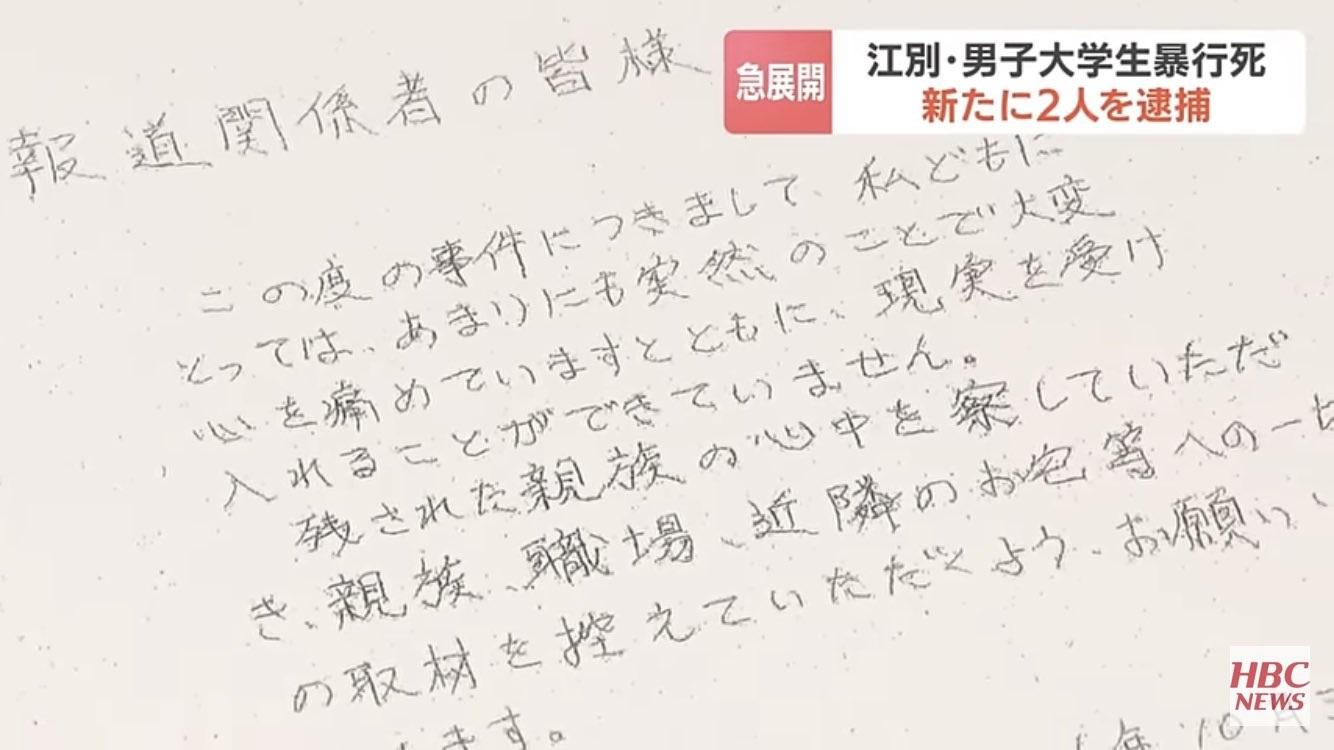 急展開
江別・男子大学生暴行死
新たに2人を逮捕
報道関係者の皆様
この度の事件につきまして、私どもに
とっては、あまりにも突然のことで大変
心を痛めていますとともに、現実を受け
入れることができていません。
残された親族の心中を察していただ
き、親族、職場、近隣のお宅等への一切
の取材を控えていただくよう、お願い
ます。
年10月
HBC
NEWS